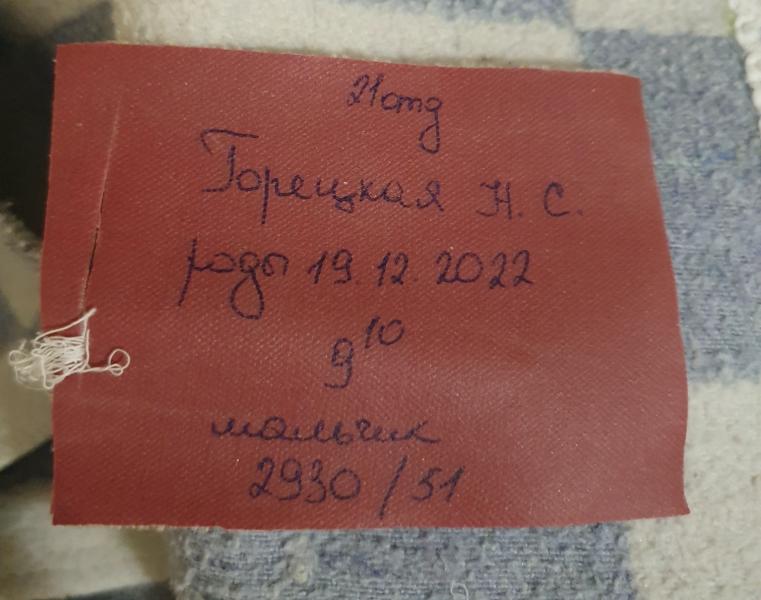 21отд
Горецкая Н. С.
роды 19.12.2022
9¹⁰
мальчик
2930/51